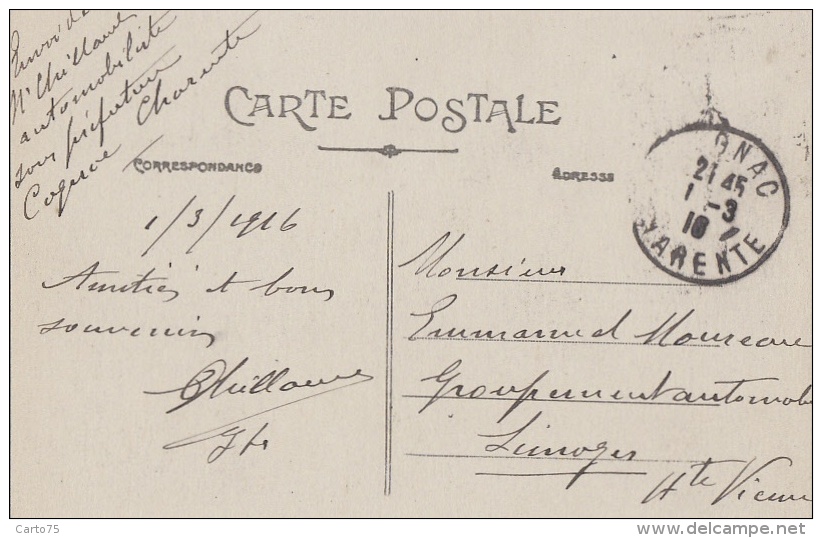 Envoi de
Mr Thillaume
automobiliste
sous préfecture
Cognac Charente
CARTE POSTALE
CORRESPONDANCE
ADRESSE
GNAC
21 45
1 -3
16
HARENTE
1/3/1916
Amitiés et bons
souvenirs
Monsieur
Emmanuel Moureau
Groupement automob
Limoges
Hte Vienne
Carto75
delcampe.net